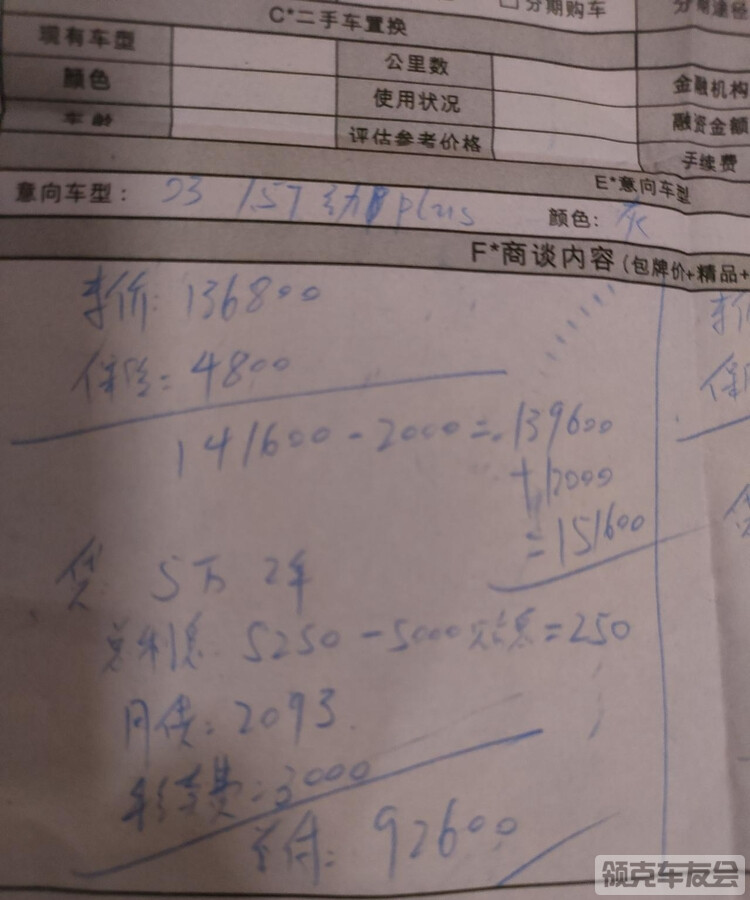 分期购车
分期途径
C*二手车置换
现有车型
公里数
颜色
使用状况
金融机构
车龄
评估参考价格
融资金额
手续费
E*意向车型
意向车型: 03 1.5T 劲 plus
颜色: 灰
F*商谈内容(包牌价+精品+
车价: 136800
保险: 4800
141600-2000=139600
+12000
=151600
贷 5万 2年
总利息 5250-5000贴息=250
月供: 2093
手续费: 3000
首付: 92600
车价
保险
领克车友会